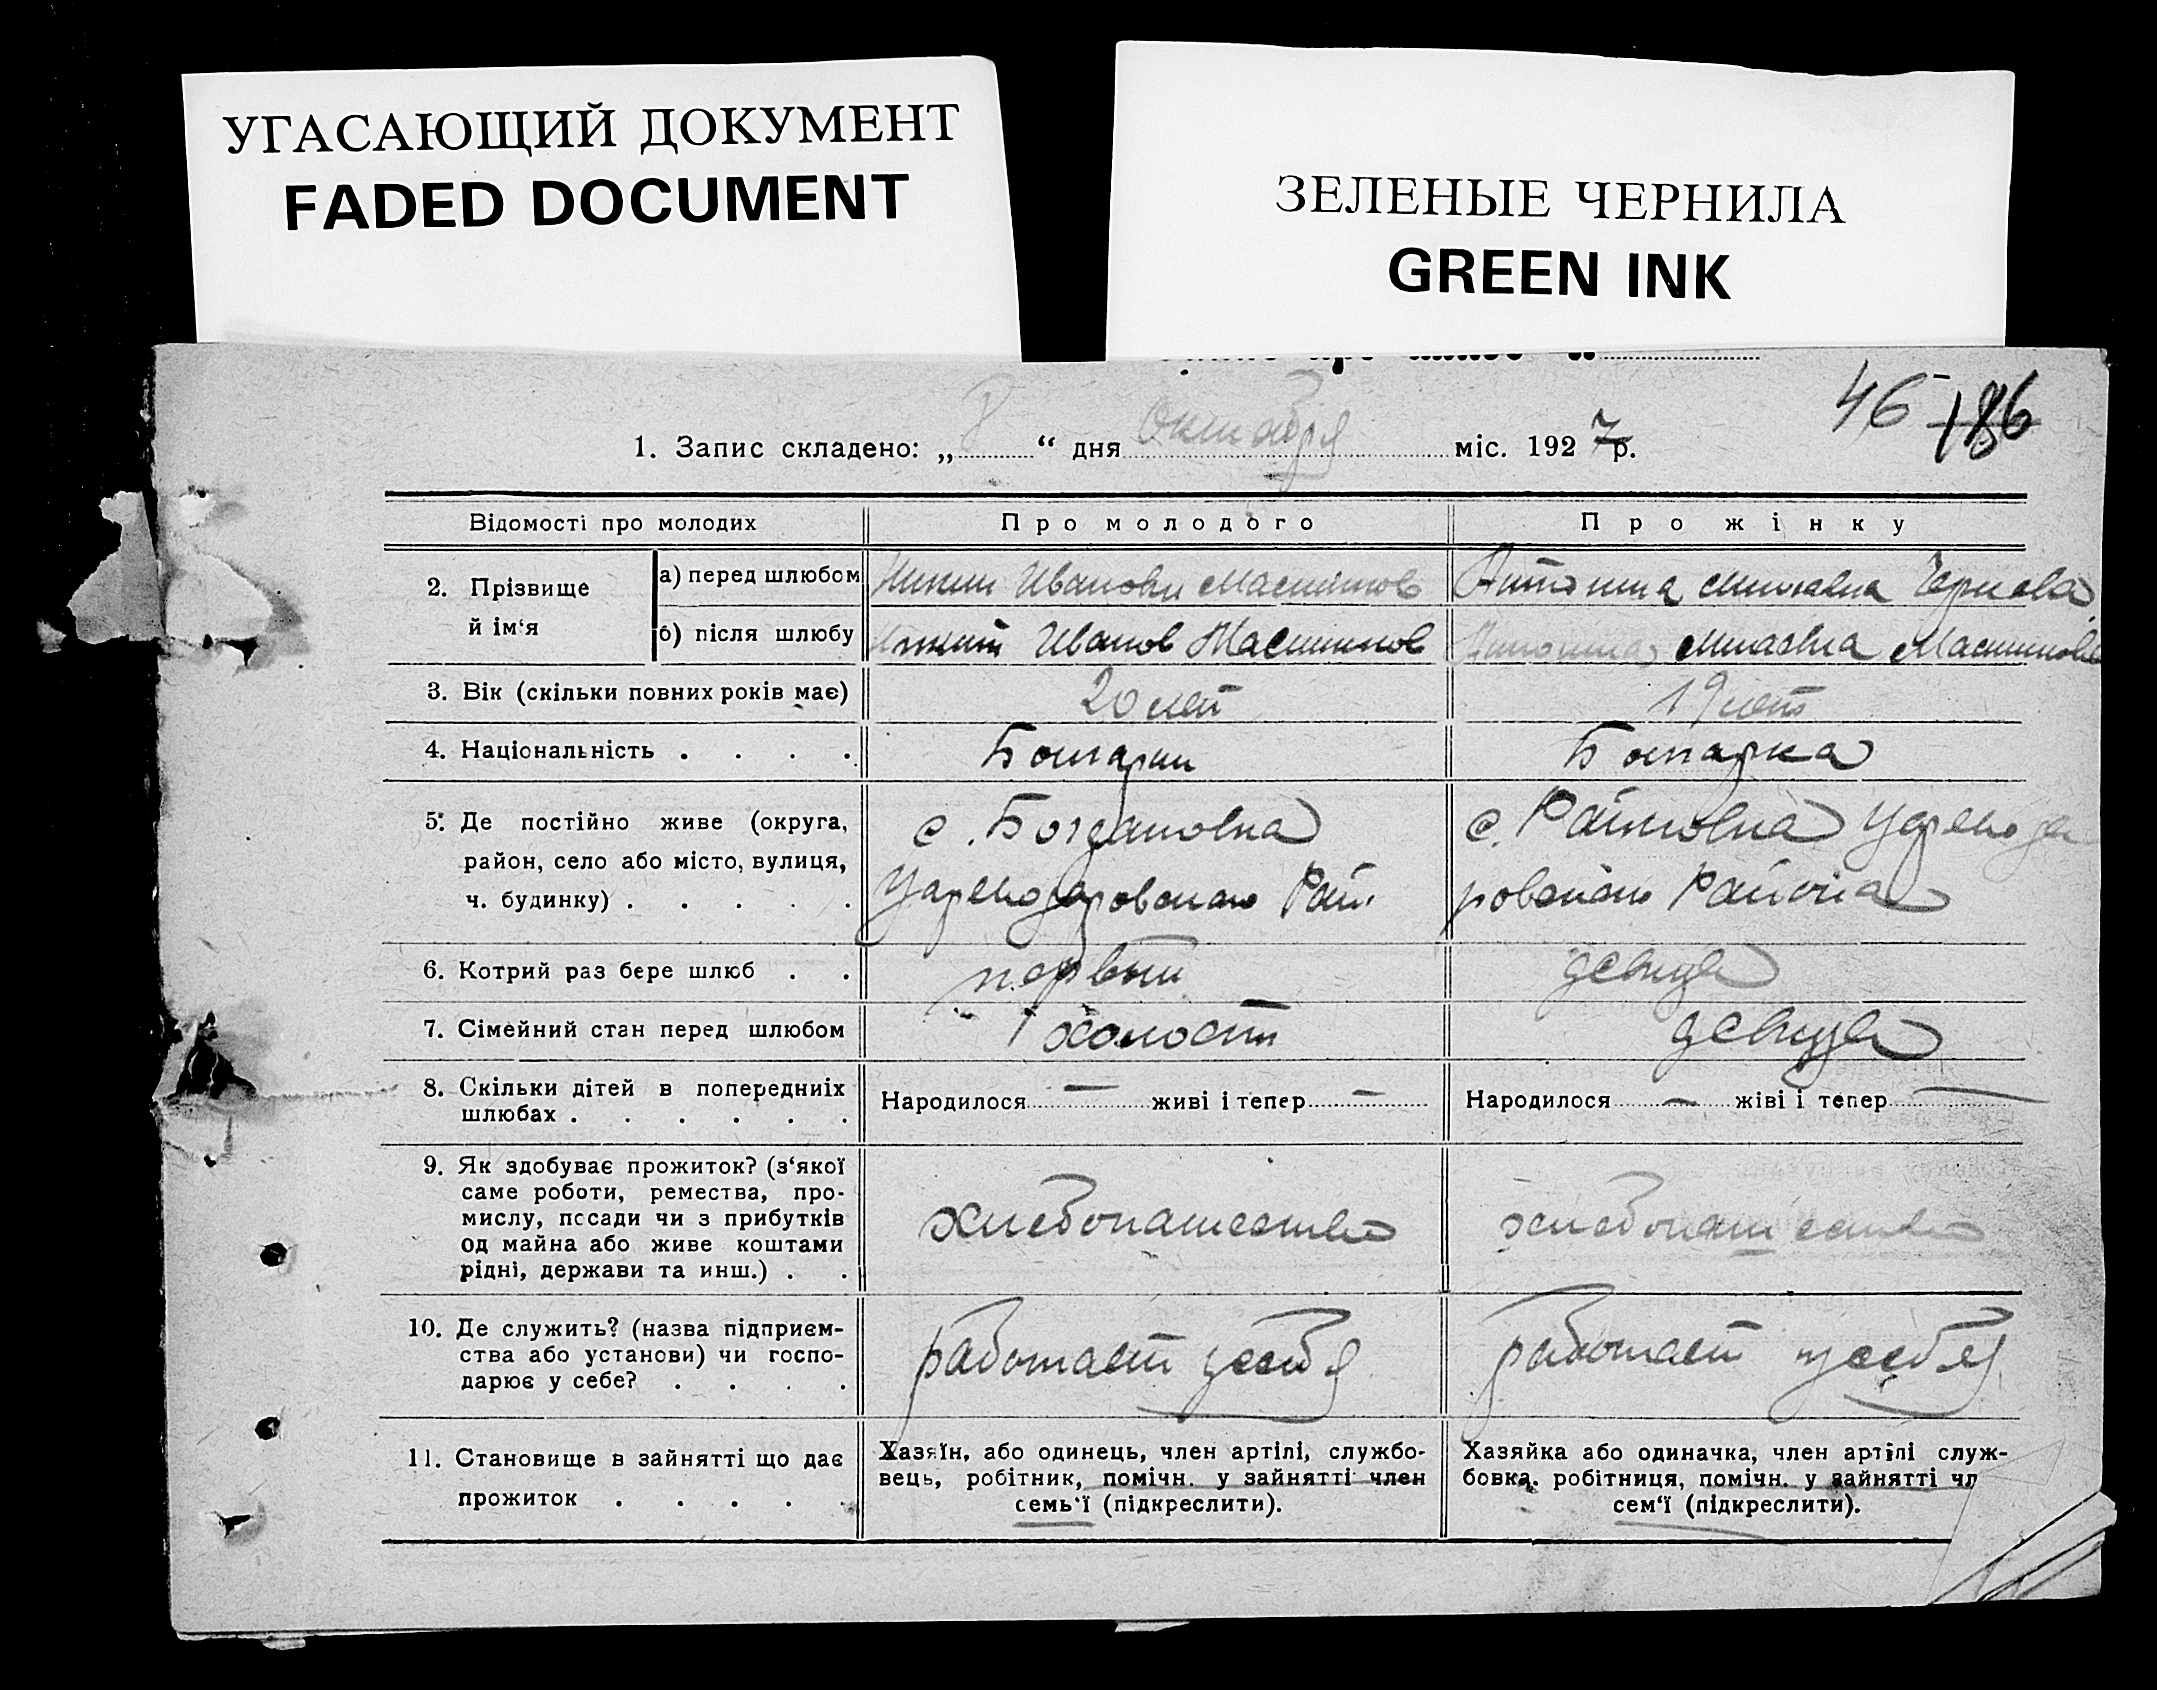 УГАСАЮЩИЙ ДОКУМЕНТ
FADED DOCUMENT
ЗЕЛЕНЫЕ ЧЕРНИЛА
GREEN INK
46 186
1. Запис складено: „ 8 “ дня Октября міс. 1927р.
Відомості про молодих Про молодого Про жінку
2. Прізвище й ім‘я
а) перед шлюбом Иванович Антонина
б) після шлюбу Иванов
3. Вік (скільки повних років має) 20 лет 19 лет
4. Національність . . . . Болгарин Болгарка
5. Де постійно живе (округа, с. Богдановка с. Райновка Цареода
район, село або місто, вулиця, Рай.
ч. будинку) . . . . . ровского Района
6. Котрий раз бере шлюб . . первый девица
7. Сімейний стан перед шлюбом холост девица
8. Скільки дітей в попередниіх Народилося — живі і тепер — Народилося — жіві і тепер —
шлюбах . . . . . .
9. Як здобуває прожиток? (з‘якої
саме роботи, ремества, про-
мислу, посади чи з прибутків хлебопашество хлебопашество
од майна або живе коштами
рідні, держави та инш.) . .
10. Де служить? (назва підприєм-
ства або установи) чи госпо- работает у себя работает у себя
дарює у себе? . . . .
11. Становище в зайнятті що дає Хазяїн, або одинець, член артілі, службо- Хазяйка або одиначка, член артілі служ-
вець, робітник, помічн. у зайнятті член бовка, робітниця, помічн. у зайнятті чл
прожиток . . . . . семь‘ї (підкреслити). сем‘ї (підкреслити).